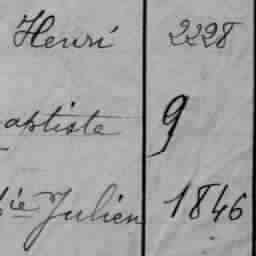 Henri 2228
aptiste 9
ie Julien 1846